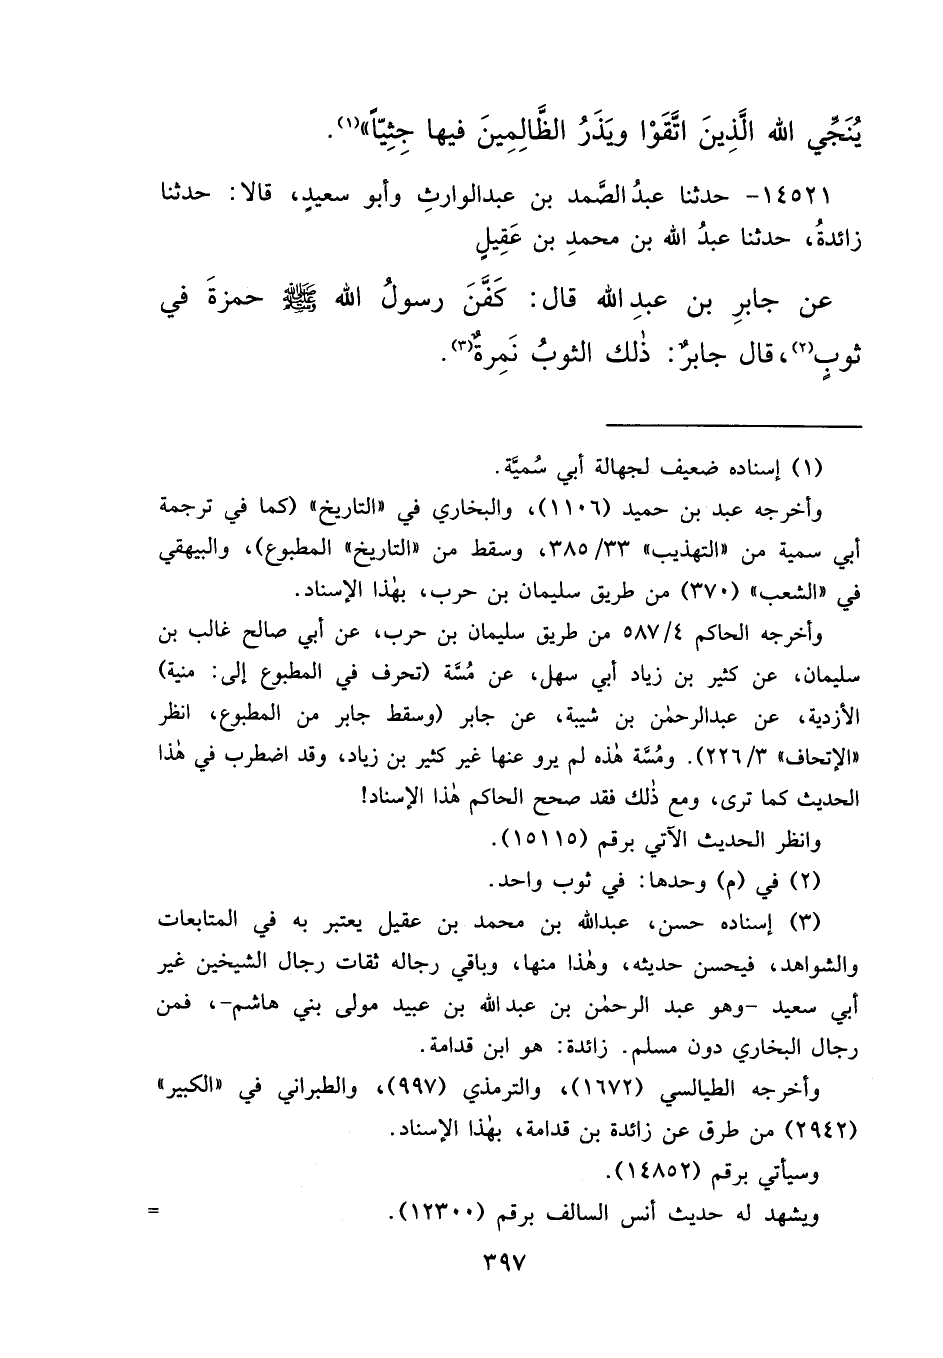 يُنَجِّي الله الَّذِينَ اتَّقَوْا ويَذَرُ الظَّالِمِينَ فيها جِثِيّاً»(١).
١٤٥٢١- حدثنا عبدُ الصَّمد بن عبدالوارثِ وأبو سعيدٍ، قالا: حدثنا
زائدةُ، حدثنا عبدُ الله بن محمدِ بن عَقِيلٍ
عن جابرِ بن عبدِ الله قال: كَفَّنَ رسولُ الله ﷺ حمزةَ في
ثوبٍ(٢)، قال جابرٌ: ذٰلك الثوبُ نَمِرةٌ(٣).
(١) إسناده ضعيف لجهالة أبي سُميَّة.
وأخرجه عبد بن حميد (١١٠٦)، والبخاري في «التاريخ» (كما في ترجمة
أبي سمية من «التهذيب» ٣٨٥/٣٣، وسقط من «التاريخ» المطبوع)، والبيهقي
في «الشعب» (٣٧٠) من طريق سليمان بن حرب، بهٰذا الإسناد.
وأخرجه الحاكم ٥٨٧/٤ من طريق سليمان بن حرب، عن أبي صالح غالب بن
سليمان، عن كثير بن زياد أبي سهل، عن مُسَّة (تحرف في المطبوع إلى: منية)
الأزدية، عن عبدالرحمٰن بن شيبة، عن جابر (وسقط جابر من المطبوع، انظر
«الإتحاف» ٢٢٦/٣). ومُسَّة هٰذه لم يرو عنها غير كثير بن زياد، وقد اضطرب في هٰذا
الحديث كما ترى، ومع ذٰلك فقد صحح الحاكم هٰذا الإسناد!
وانظر الحديث الآتي برقم (١٥١١٥).
(٢) في (م) وحدها: في ثوب واحد.
(٣) إسناده حسن، عبدالله بن محمد بن عقيل يعتبر به في المتابعات
والشواهد، فيحسن حديثه، وهٰذا منها، وباقي رجاله ثقات رجال الشيخين غير
أبي سعيد -وهو عبد الرحمٰن بن عبد الله بن عبيد مولى بني هاشم-، فمن
رجال البخاري دون مسلم. زائدة: هو ابن قدامة.
وأخرجه الطيالسي (١٦٧٢)، والترمذي (٩٩٧)، والطبراني في «الكبير»
(٢٩٤٢) من طرق عن زائدة بن قدامة، بهٰذا الإسناد.
وسيأتي برقم (١٤٨٥٢).
ويشهد له حديث أنس السالف برقم (١٢٣٠٠). =
٣٩٧